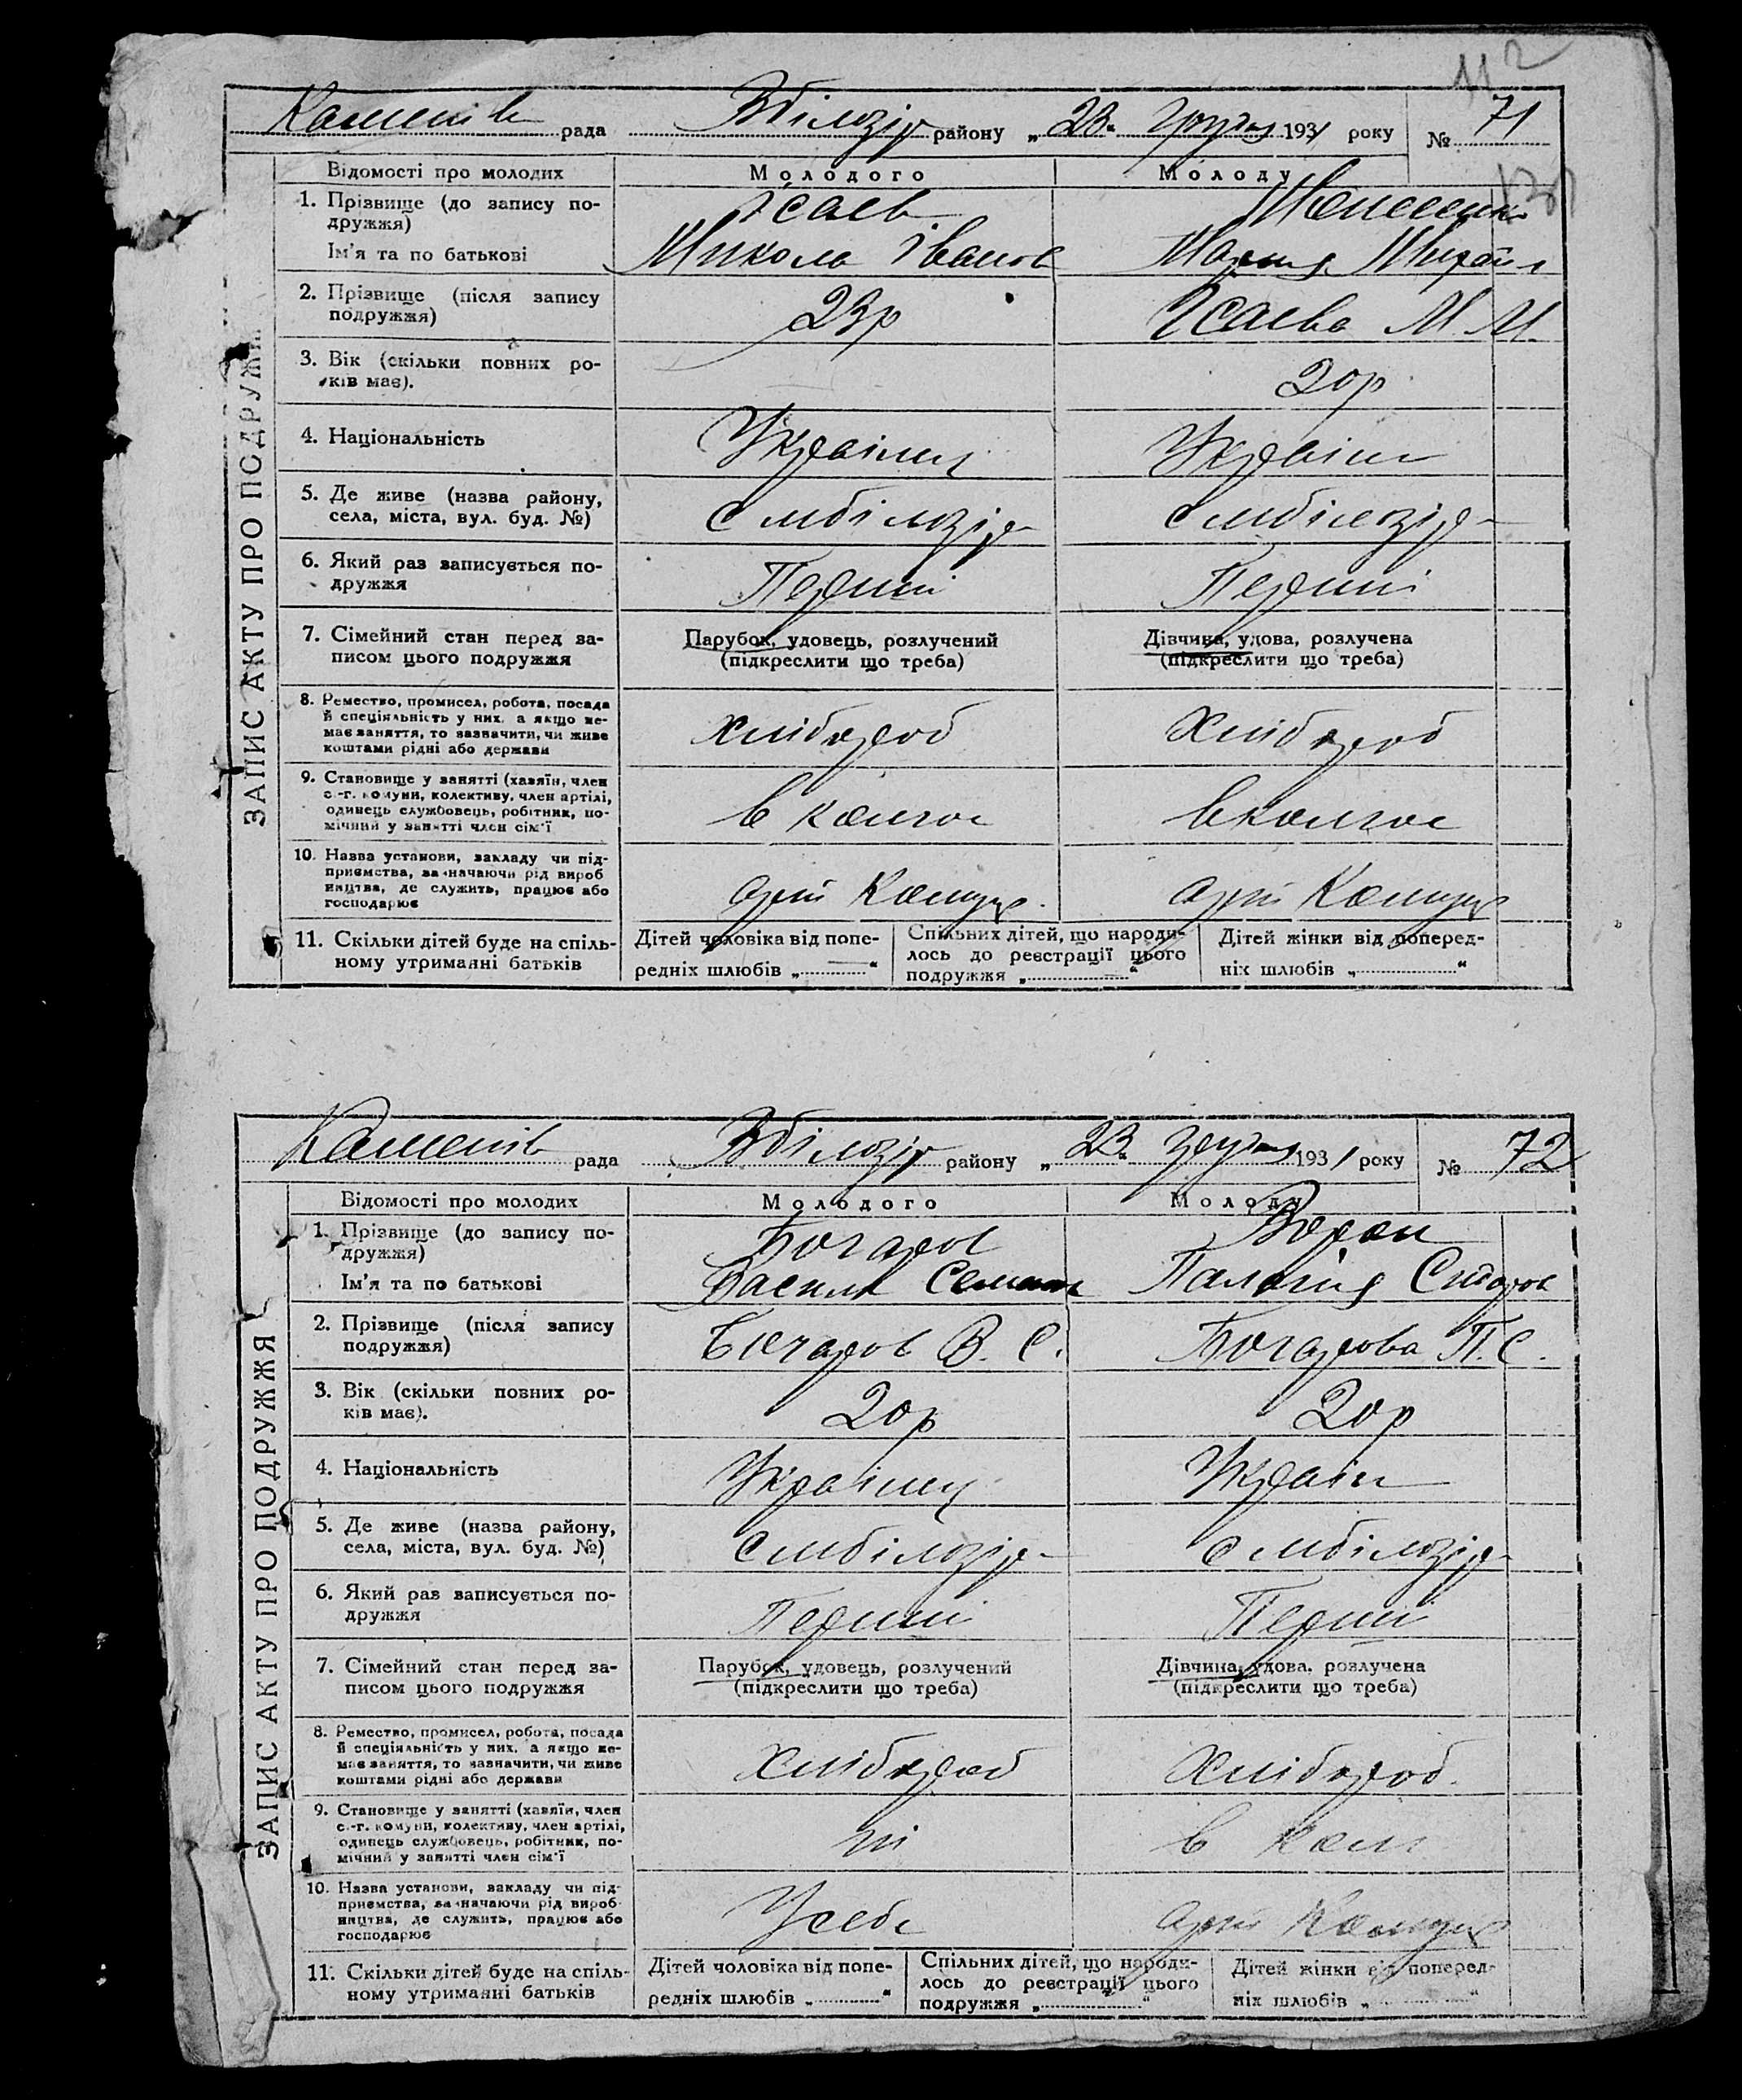 112
рада Вбілозір району „23“ грудня 1931 року № 71
ЗАПИС АКТУ ПРО ПОДРУЖЖЯ
Відомості про молодих Молодого Молоду
1. Прізвище (до запису по-
дружжя) Ісаєв
Ім'я та по батькові Микола Іванов Мария
2. Прізвище (після запису
подружжя) 23р Ісаева М. М.
3. Вік (скільки повних ро-
ків має). 20р
4. Національність Українец Україн
5. Де живе (назва району,
села, міста, вул. буд. №) с мбілозір с мбілозір
6. Який раз записується по-
дружжя Перший Перший
7. Сімейний стан перед за-
писом цього подружжя
Парубок, удовець, розлучений
(підкреслити що треба)
Дівчина, удова, розлучена
(підкреслити що треба)
8. Ремество, промисел, робота, посада
й спеціяльність у них, а якщо не-
має заняття, то зазначити, чи живе
коштами рідні або держави
хлібороб хлібороб
9. Становище у занятті (хазяїн, член
с.-г. комуни, колективу, член артілі,
одинець службовець, робітник, по-
мічний у занятті член сім'ї
в колгос в колгос
10. Назва установи, закладу чи під-
приємства, зазначаючи рід вироб
ництва, де служить, працює або
господарює
11. Скільки дітей буде на спіль-
ному утриманні батьків
Дітей чоловіка від попе-
редніх шлюбів „ “
Спільних дітей, що народи-
лось до реєстрації цього
подружжя „ “
Дітей жінки від поперед-
ніх шлюбів „ “
рада Вбілозір району „23“ грудня 1931 року № 72
ЗАПИС АКТУ ПРО ПОДРУЖЖЯ
Відомості про молодих Молодого Молоду
1. Прізвище (до запису по-
дружжя) Бочаров
Ім'я та по батькові Василь Семен Палагія Сидоров
2. Прізвище (після запису
подружжя) Бочаров В. С. Бочарова П. С.
3. Вік (скільки повних ро-
ків має). 20р 20р
4. Національність Українец Україн
5. Де живе (назва району,
села, міста, вул. буд. №) с мбілозір с мбілозір
6. Який раз записується по-
дружжя Перший Перший
7. Сімейний стан перед за-
писом цього подружжя
Парубок, удовець, розлучений
(підкреслити що треба)
Дівчина, удова, розлучена
(підкреслити що треба)
8. Ремество, промисел, робота, посада
й спеціяльність у них, а якщо не-
має заняття, то зазначити, чи живе
коштами рідні або держави
хлібороб хлібороб
9. Становище у занятті (хазяїн, член
с.-г. комуни, колективу, член артілі,
одинець службовець, робітник, по-
мічний у занятті член сім'ї
ні в колг
10. Назва установи, закладу чи під-
приємства, зазначаючи рід вироб-
ництва, де служить, працює або
господарює
Усебе
11. Скільки дітей буде на спіль-
ному утриманні батьків
Дітей чоловіка від попе-
редніх шлюбів „ “
Спільних дітей, що народи-
лось до реєстрації цього
подружжя „ “
Дітей жінки від поперед-
ніх шлюбів „ “